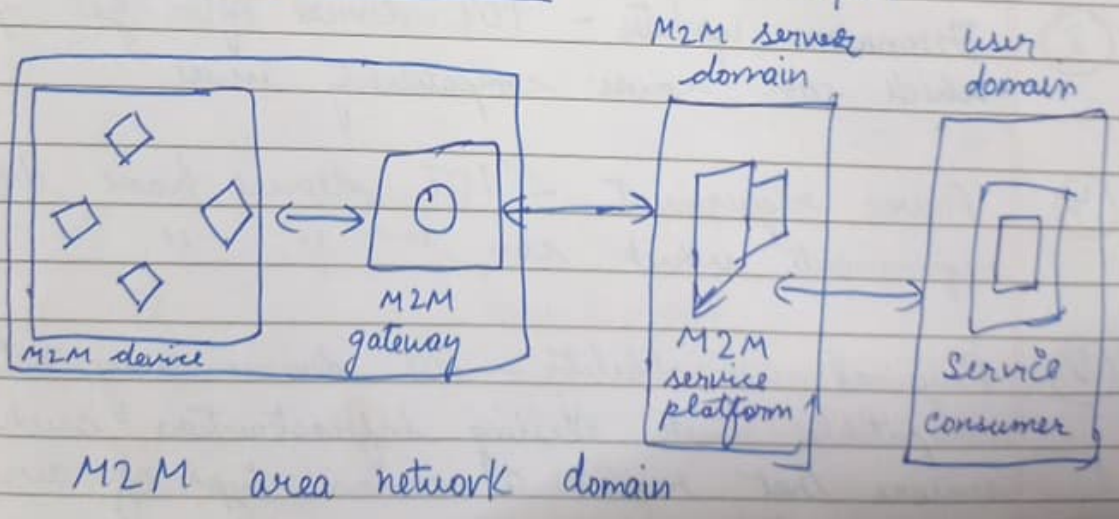 M2M server domain
user domain
M2M device
M2M gateway
M2M service platform
Service consumer
M2M area network domain